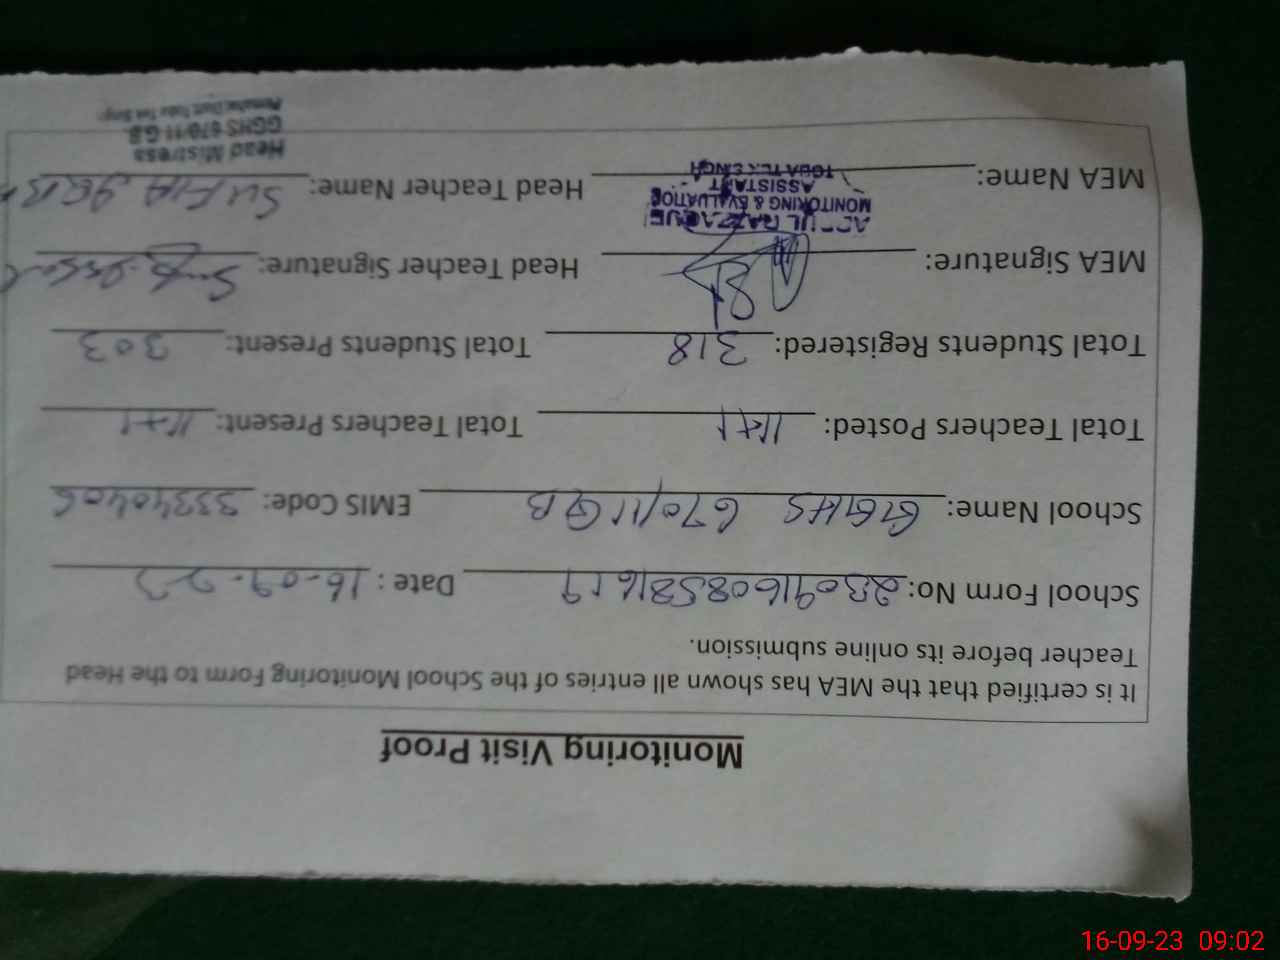 Monitoring Visit Proof
It is certified that the MEA has shown all entries of the School Monitoring Form to the Head
Teacher before its online submission.
School Form No: Date : 16-09-23
School Name: GGHS 670/11 GB EMIS Code: 33340406
Total Teachers Posted: 11+1 Total Teachers Present: 11+1
Total Students Registered: 318 Total Students Present: 303
MEA Signature: Head Teacher Signature:
ABDUL RAZZAQUE
MONITORING & EVALUATION
ASSISTANT
TOBA TEK SINGH
MEA Name: Head Teacher Name: SUFIA
Head Mistress
GGHS 670/11 G.B.
16-09-23 09:02